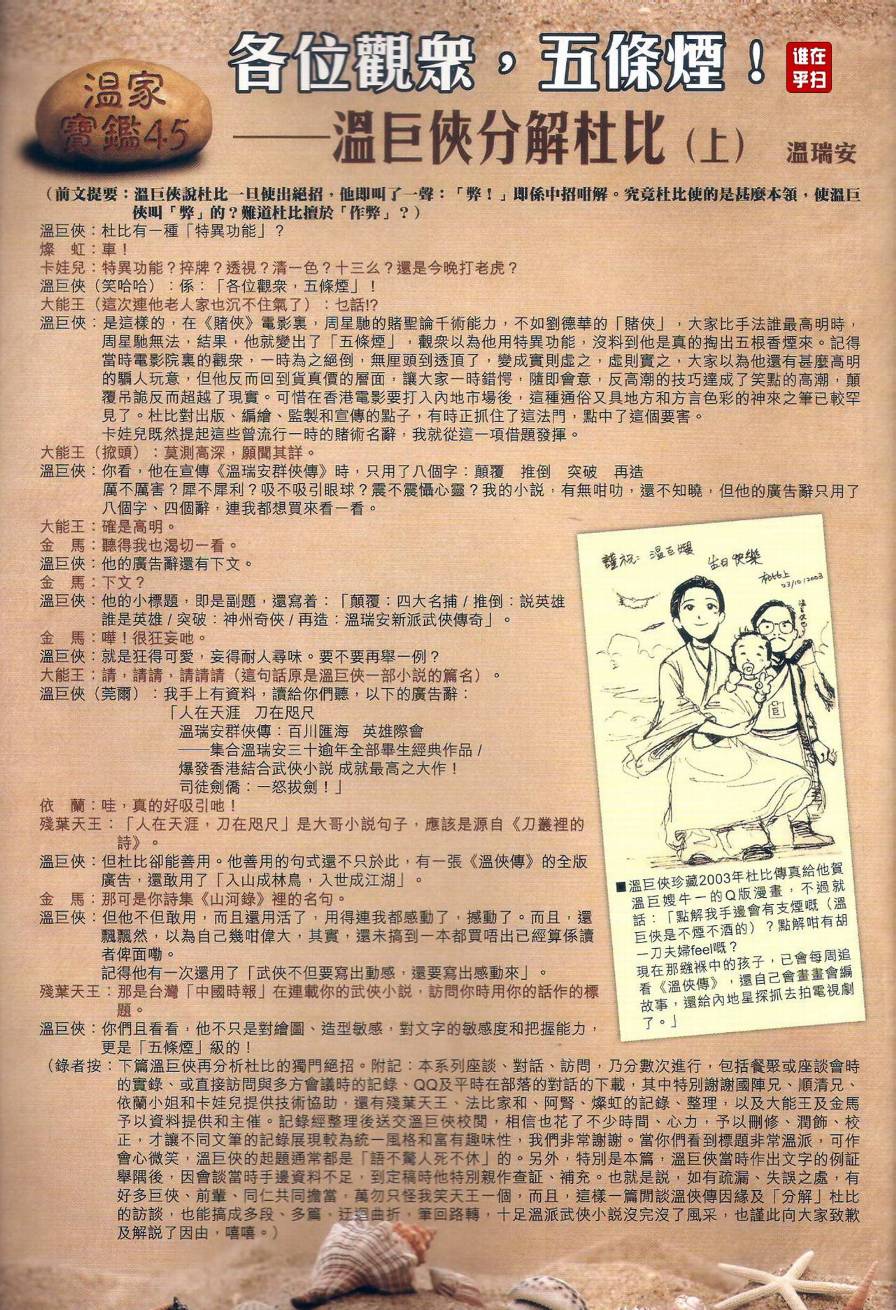 各位觀眾，五條煙！
谁在
乎扫
溫家
寶鑑45
——溫巨俠分解杜比（上）
溫瑞安
（前文提要：溫巨俠說杜比一旦使出絕招，他即叫了一聲：「弊！」即係中招咁解。究竟杜比使的是甚麼本領，使溫巨
俠叫「弊」的？難道杜比擅於「作弊」？）
溫巨俠：杜比有一種「特異功能」？
燦　虹：車！
卡娃兒：特異功能？捽牌？透視？清一色？十三么？還是今晚打老虎？
溫巨俠（笑哈哈）：係：「各位觀眾，五條煙」！
大能王（這次連他老人家也沉不住氣了）：乜話!?
溫巨俠：是這樣的，在《賭俠》電影裏，周星馳的賭聖論千術能力，不如劉德華的「賭俠」，大家比手法誰最高明時，
周星馳無法，結果，他就變出了「五條煙」，觀眾以為他用特異功能，沒料到他是真的掏出五根香煙來。記得
當時電影院裏的觀眾，一時為之絕倒，無厘頭到透頂了，變成實則虛之，虛則實之，大家以為他還有甚麼高明
的騙人玩意，但他反而回到貨真價的層面，讓大家一時錯愕，隨即會意，反高潮的技巧達成了笑點的高潮，顛
覆吊詭反而超越了現實。可惜在香港電影要打入內地市場後，這種通俗又具地方和方言色彩的神來之筆已較罕
見了。杜比對出版、編繪、監製和宣傳的點子，有時正抓住了這法門，點中了這個要害。
卡娃兒既然提起這些曾流行一時的賭術名辭，我就從這一項借題發揮。
大能王（掀頭）：莫測高深，願聞其詳。
溫巨俠：你看，他在宣傳《溫瑞安群俠傳》時，只用了八個字：顛覆　推倒　突破　再造
厲不厲害？犀不犀利？吸不吸引眼球？震不震懾心靈？我的小說，有無咁叻，還不知曉，但他的廣告辭只用了
八個字、四個辭，連我都想買來看一看。
大能王：確是高明。
金　馬：聽得我也渴切一看。
溫巨俠：他的廣告辭還有下文。
金　馬：下文？
溫巨俠：他的小標題，即是副題，還寫着：「顛覆：四大名捕 / 推倒：說英雄
誰是英雄 / 突破：神州奇俠 / 再造：溫瑞安新派武俠傳奇」。
金　馬：嘩！很狂妄吔。
溫巨俠：就是狂得可愛，妄得耐人尋味。要不要再舉一例？
大能王：請，請請，請請請（這句話原是溫巨俠一部小說的篇名）。
溫巨俠（莞爾）：我手上有資料，讀給你們聽，以下的廣告辭：
「人在天涯　刀在咫尺
溫瑞安群俠傳：百川匯海　英雄際會
——集合溫瑞安三十逾年全部畢生經典作品 /
爆發香港結合武俠小說 成就最高之大作！
司徒劍僑：一怒拔劍！」
依　蘭：哇，真的好吸引吔！
殘葉天王：「人在天涯，刀在咫尺」是大哥小說句子，應該是源自《刀叢裡的
詩》。
溫巨俠：但杜比卻能善用。他善用的句式還不只於此，有一張《溫俠傳》的全版
廣告，還敢用了「入山成林鳥，入世成江湖」。
金　馬：那可是你詩集《山河錄》裡的名句。
溫巨俠：但他不但敢用，而且還用活了，用得連我都感動了，撼動了。而且，還
飄飄然，以為自己幾咁偉大，其實，還未搞到一本都買唔出已經算係讀
者俾面嘞。
記得他有一次還用了「武俠不但要寫出動感，還要寫出感動來」。
殘葉天王：那是台灣「中國時報」在連載你的武俠小說，訪問你時用你的話作的標
題。
溫巨俠：你們且看看，他不只是對繪圖、造型敏感，對文字的敏感度和把握能力，
更是「五條煙」級的！
謹祝：溫巨俠
生日快樂
杜比上
23/10/2003
■溫巨俠珍藏2003年杜比傳真給他賀
溫巨嫂牛一的Q版漫畫，不過就
話：「點解我手邊會有支煙嘅（溫
巨俠是不煙不酒的）？點解咁有胡
一刀夫婦feel嘅？
現在那繈褓中的孩子，已會每周追
看《溫俠傳》，還自己會畫畫會編
故事，還給內地星探抓去拍電視劇
了。」
（錄者按：下篇溫巨俠再分析杜比的獨門絕招。附記：本系列座談、對話、訪問，乃分數次進行，包括餐聚或座談會時
的實錄、或直接訪問與多方會議時的記錄、QQ及平時在部落的對話的下載，其中特別謝謝國陣兄、順清兄、
依蘭小姐和卡娃兒提供技術協助，還有殘葉天王、法比家和、阿賢、燦虹的記錄、整理，以及大能王及金馬
予以資料提供和主催。記錄經整理後送交溫巨俠校閱，相信也花了不少時間、心力，予以刪修、潤飾、校
正，才讓不同文筆的記錄展現較為統一風格和富有趣味性，我們非常謝謝。當你們看到標題非常溫派，可作
會心微笑，溫巨俠的起題通常都是「語不驚人死不休」的。另外，特別是本篇，溫巨俠當時作出文字的例証
舉隅後，因會談當時手邊資料不足，到定稿時他特別親作查証、補充。也就是說，如有疏漏、失誤之處，有
好多巨俠、前輩、同仁共同擔當，萬勿只怪我笑天王一個，而且，這樣一篇閒談溫俠傳因緣及「分解」杜比
的訪談，也能搞成多段、多篇、迂迴曲折，筆回路轉，十足溫派武俠小說沒完沒了風采，也謹此向大家致歉
及解說了因由，嘻嘻。）